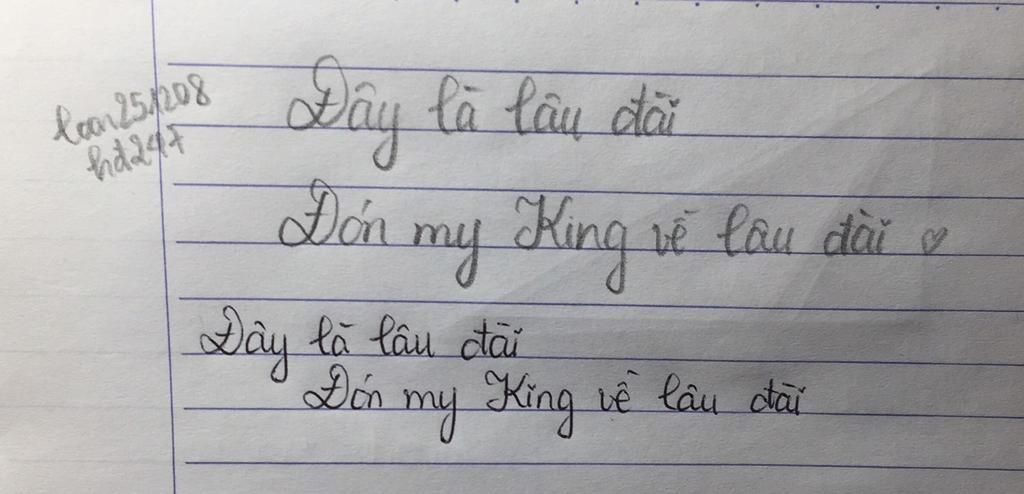 loan251208
hđ247
Đây là lâu đài
Đón my King về lâu đài ♡
Đây là lâu đài
Đón my King về lâu đài